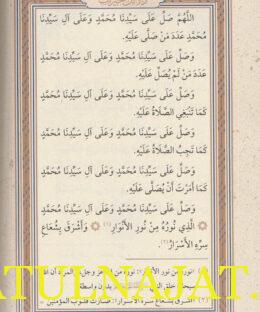 اللَّهُمَّ صَلِّ عَلَى سَيِّدِنَا مُحَمَّدٍ وَعَلَى آلِ سَيِّدِنَا
مُحَمَّدٍ عَدَدَ مَنْ صَلَّى عَلَيْهِ.
وَصَلِّ عَلَى سَيِّدِنَا مُحَمَّدٍ وَعَلَى آلِ سَيِّدِنَا مُحَمَّدٍ
عَدَدَ مَنْ لَمْ يُصَلِّ عَلَيْهِ.
وَصَلِّ عَلَى سَيِّدِنَا مُحَمَّدٍ وَعَلَى آلِ سَيِّدِنَا مُحَمَّدٍ
كَمَا تَنْبَغِي الصَّلَاةُ عَلَيْهِ.
وَصَلِّ عَلَى سَيِّدِنَا مُحَمَّدٍ وَعَلَى آلِ سَيِّدِنَا مُحَمَّدٍ
كَمَا تَجِبُ الصَّلَاةُ عَلَيْهِ.
وَصَلِّ عَلَى سَيِّدِنَا مُحَمَّدٍ وَعَلَى آلِ سَيِّدِنَا مُحَمَّدٍ
كَمَا أَمَرْتَ أَنْ يُصَلَّى عَلَيْهِ.
وَصَلِّ عَلَى سَيِّدِنَا مُحَمَّدٍ وَعَلَى آلِ سَيِّدِنَا مُحَمَّدٍ
الَّذِي نُورُهُ مِنْ نُورِ الْأَنْوَارِ (١) وَأَشْرَقَ بِشُعَاعِ
سِرِّهِ الْأَسْرَارُ (٢).
نوره من نور الأنوار: نوره من
بدون واسطة
(٢) أشرق بشعاع سره الأسرار: صارت قلوب المؤمنين
ATULNAJAT.